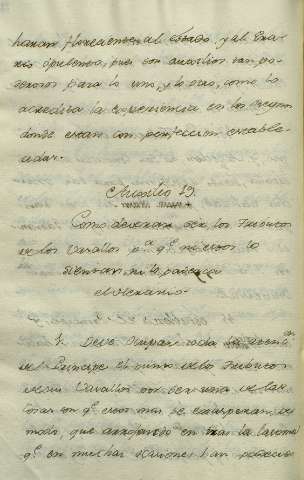 haran florecientes al estado, y al Era-
rio opulento, pues son auxilios tan po-
derosos para lo uno, y lo otro, como lo
acredita la experiencia en los Reynos
donde estan con perfeccion estable-
cidas.
19.
Como deveran ser los Tributos
de los Vasallos pª qº no estos lo
sientan ni lo padezca
el Herario.
1. Deve ocupar toda la atenⁿ
del Principe el de los Tributos
de sus Vasallos por ser una de las
cosas con qº estos mas se exasperan, de
modo, que
qº en muchas ocasiones han padecido